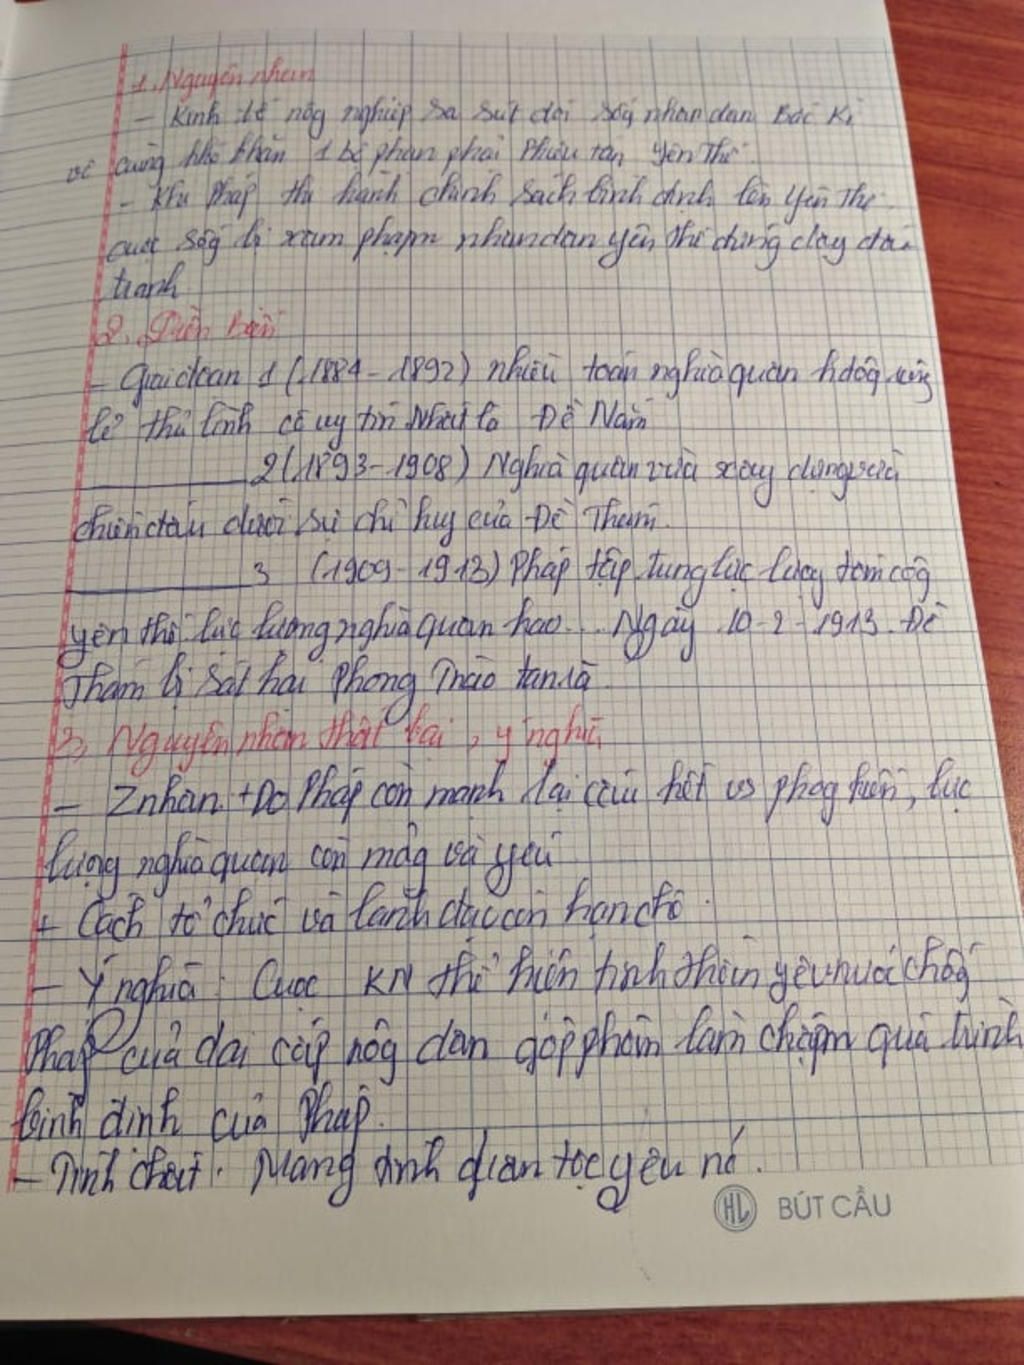 1. Nguyên nhân
- Kinh tế nôg nghiệp sa sút đời sốg nhân dân Bắc Kì
vô cùng khó khăn 1 bộ phận phải Phiêu tán Yên Thế.
- Khi Pháp thi hành chính sách bình định lên Yên Thế.
cuộc sốg bị xâm phạm nhân dân yên thế đứng dậy đấu
tranh
2. Diễn biến
- Giai đoạn 1 (1884 - 1892) nhiều toán nghĩa quân hđộg
lẻ thủ lĩnh có uy tín Nhất là Đề Nắm
2 (1893 - 1908) Nghĩa quân vừa xây dựng vừa
chiến đấu dưới sự chỉ huy của Đề Thám.
3 (1909 - 1913) Pháp tập tung lực lượg tấn côg
yên thế lực lương nghĩa quân hao... Ngày 10-2-1913. Đề
Thám bị sát hại Phong Trào tan rã
3, Nguyên nhân thất bại, ý nghĩa
- Znhân + Do Pháp còn mạnh lại câu kết vs phog kiến, lực
lượng nghĩa quân còn mỏg và yếu
+ Cách tổ chức và lãnh đạo còn hạn chế.
- Ý nghĩa: Cuộc KN thể hiện tinh thần yêu nước chốg
Pháp của dai cấp nôg dân góp phần làm chậm quá trình
bình định của Pháp.
- Tính chất: Mang tính dân tộc yêu nc.
HL BÚT CẦU